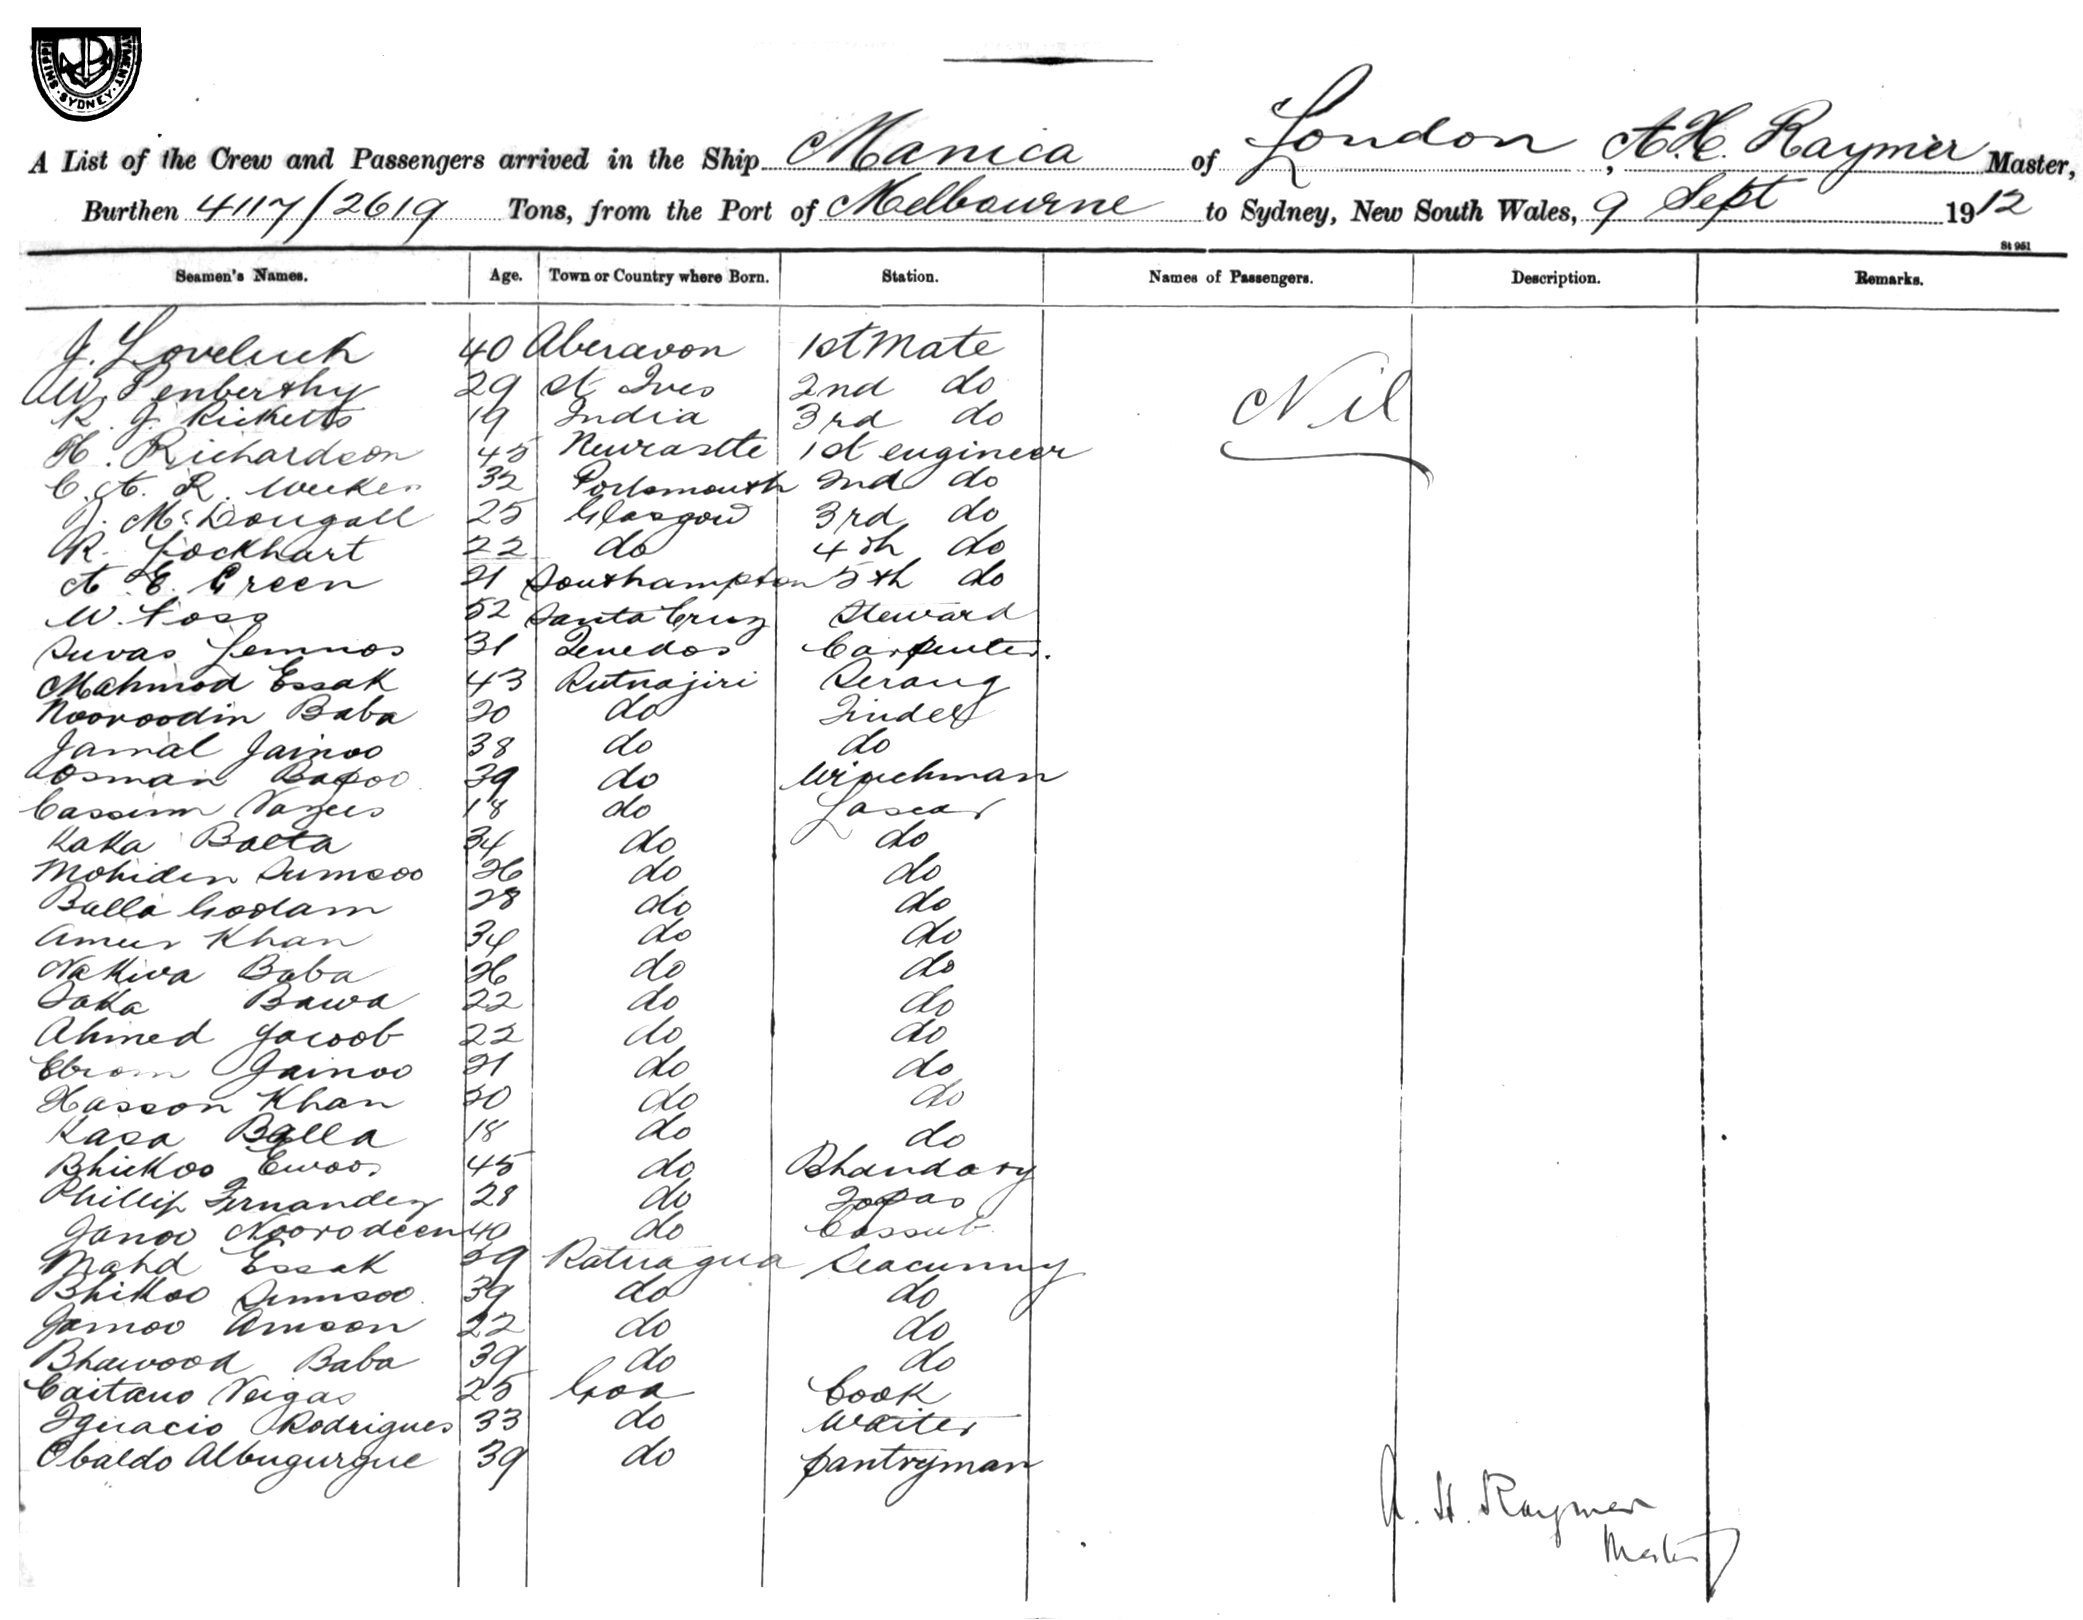 SHIPPING ... SYDNEY
A List of the Crew and Passengers arrived in the Ship Manica of London, A.H. Raymer Master,
Burthen 4117/2619 Tons, from the Port of Melbourne to Sydney, New South Wales, 9 Sept 1912
St 961
Seamen's Names. Age. Town or Country where Born. Station. Names of Passengers. Description. Remarks.
J. Loveluck 40 Aberavon 1st Mate
W. Penberthy 29 St Ives 2nd do
Nil
R. J. Ricketts 19 India 3rd do
H. Richardson 45 Newcastle 1st engineer
C. A. R. Weekes 32 Portsmouth 2nd do
J. McDougall 25 Glasgow 3rd do
R. Lockhart 22 do 4th do
A. E. Green 21 Southampton 5th do
W. 52 Santa Cruz Steward
Suvas Lemnos 31 Tenedos Carpenter.
Mahmod Essak 43 Rutnajiri Serang
Nooroodin Baba 30 do Tindel
Jamal Jainoo 38 do do
Osman Bapoo 39 do Winchman
Cassim 18 do Lascar
Kaka Baeta 34 do do
Mohiden Sumsoo 26 do do
Balla Goolam 28 do do
Ameer Khan 34 do do
Nakwa Baba 26 do do
Saka Bawa 22 do do
Ahmed Yacoob 22 do do
Ebram Jainoo 21 do do
Hasson Khan 20 do do
Kasa Balla 18 do do
Bhickoo Ewoos 45 do Bhandary
Phillip Fernandez 28 do Topas
Janoo Noorodeen 40 do Cassub
Mahd Essak 39 Ratnagua Seacunny
Bhikoo Sumsoo 39 do do
Jamoo Amson 22 do do
Bhawood Baba 39 do do
Caitano Veigas 25 Goa Cook
Ignacio Rodrigues 33 do Waiter
Obaldo Albugurgue 39 do pantryman
A. H. Raymer
Master